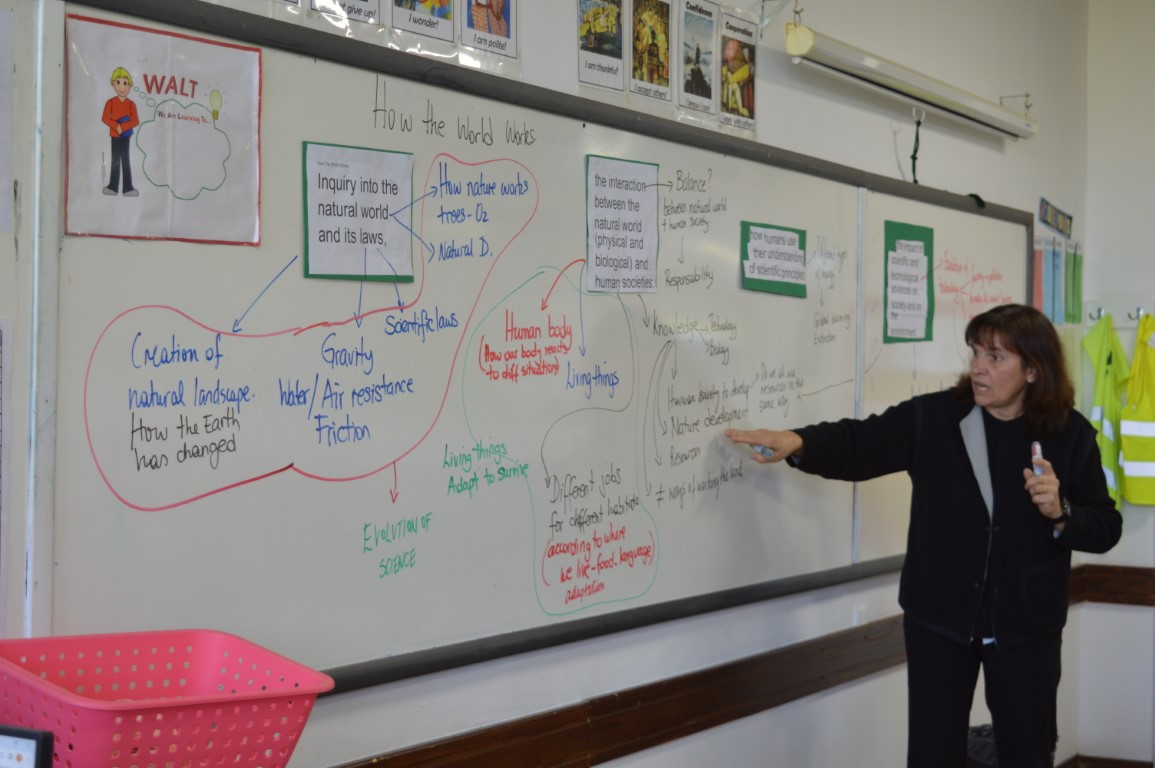 't give up!
I wonder!
I am polite!
I am thankful!
I accept others!
Confidence
I know I can!
Cooperation
WALT
We Are Learning To...
How the World Works.
Inquiry into the
natural world
and its laws,
How nature works
trees - O2
Natural D.
Creation of
natural landscape.
How the Earth
has changed
Gravity
Water/Air resistance
Friction
Scientific laws
EVOLUTION OF
SCIENCE
the interaction
between the
natural world
(physical and
biological) and
human societies
Balance?
between natural world
+ human society
Responsability
Human body
(How our body reacts
to diff situation)
Living things
Living things
Adapt to survive
Different jobs
for different habitats
(according to where
we live - food - language)
adaptation
Knowledge
Technology
Biology
Human society to develop
Nature development
Resources
≠ ways of working the land
Do we all use
resources in the
same way
how humans use
their understanding
of scientific principles
the impact of
scientific and
technological
advances on
society and on
the
environment.